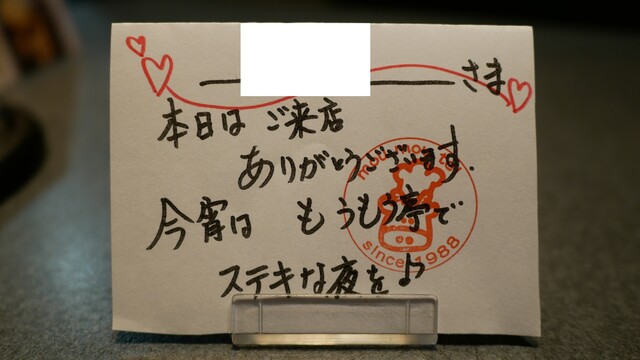 さま
本日は ご来店
ありがとうございます.
今宵は もうもう亭で
ステキな夜を♪
moumoutei
since 1988